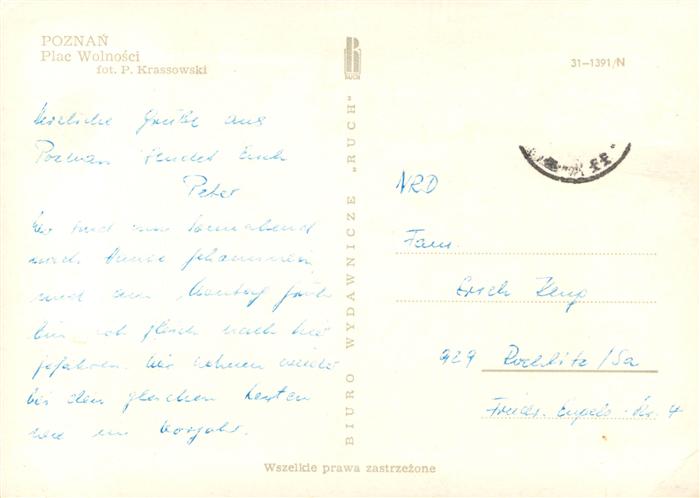 POZNAŃ
Plac Wolności
fot. P. Krassowski
Herzliche Grüße aus
Poznan sendet Euch
Peter
am Sonnabend
nach Hause gekommen,
und am Montag früh
bin ich gleich nach hier
gefahren. Wir wohnen wieder
bei den gleichen Leuten
wie im Vorjahr.
BIURO WYDAWNICZE „RUCH"
RUCH
Wszelkie prawa zastrzeżone
31-1391/N
NRD
Fam.
Erich
929 Rochlitz/Sa
Friedr. Engels-Str. 4